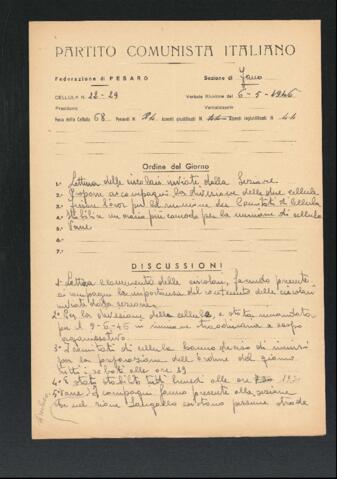 PARTITO COMUNISTA ITALIANO
Federazione di PESARO Sezione di Fano
CELLULA N. 22-29 Verbale Riunione del 6-5-1946
Presidente Verbalizzante
Forza della Cellula 68 Presenti N. 24 Assenti giustificati N. Assenti ingiustificati N. 44
Ordine del Giorno
1° Lettura delle circolari inviate dalla Sezione
2° Proporre ai compagni la divisione delle due cellule
3° l'ora per la riunione dei Comitati di Cellula
4° Stabilire un orario più comodo per la riunione di cellula
5° Varie
6°
7°
DISCUSSIONI
1° Lettura e commento delle circolari, facendo presente
ai compagni la importanza del contenuto delle circolari
inviate dalla sezione
2° Per la divisione della cellula, è stata rimandata
per il 9-6-46 in riunione straordinaria a scopo
organizzativo
3° I comitati di cellula hanno deciso di riunirsi
per la preparazione dell'ordine del giorno
tutti i sabati alle ore 19
4° È stato stabilito tutti lunedì alle ore
5° Varie I compagni fanno presente alla sezione
che nel rione esistono persone